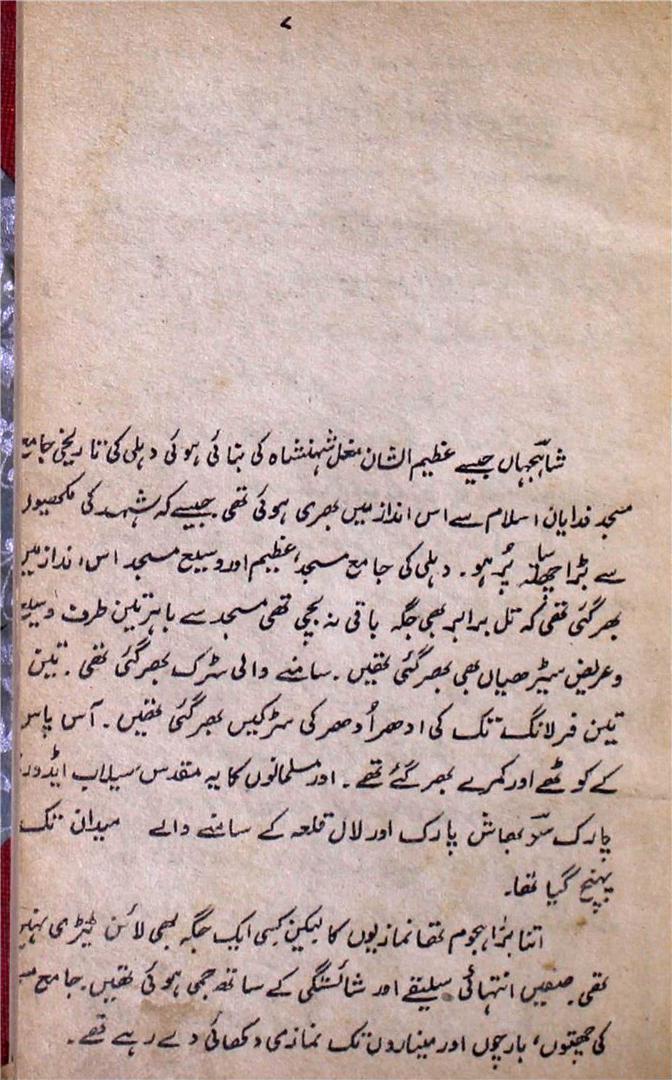 ۷
شاہجہاں جیسے عظیم الشان مغل شہنشاہ کی بنائی ہوئی دہلی کی تاریخی جامع
مسجد فدایان اسلام سے اس انداز میں بھری ہوئی تھی جیسے کہ شہد کی مکھیوں
سے بڑا سا چھتہ پُر ہو۔ دہلی کی جامع مسجد، عظیم اور وسیع مسجد اس انداز میں
بھر گئی تھی کہ تل برابر بھی جگہ باقی نہ بچی تھی مسجد سے باہر تین طرف وسیع
و عریض سیڑھیاں بھی بھر گئی تھیں۔ سامنے والی سڑک بھر گئی تھی۔ تین
تین فرلانگ تک کی ادھر اُدھر کی سڑکیں بھر گئی تھیں۔ آس پاس
کے کوٹھے اور کمرے بھر گئے تھے۔ اور مسلمانوں کا یہ مقدس سیلاب ایڈورڈ
پارک سوبھاش پارک اور لال قلعہ کے سامنے والے میدان تک
پہنچ گیا تھا۔
اتنا بڑا ہجوم تھا نمازیوں کا لیکن کسی ایک جگہ بھی لائن ٹیڑھی نہیں
تھی۔ صفیں انتہائی سلیقے اور شائستگی کے ساتھ جمی ہوئی تھیں۔ جامع
کی چھتوں، بارچوں اور میناروں تک نمازی دکھائی دے رہے تھے۔